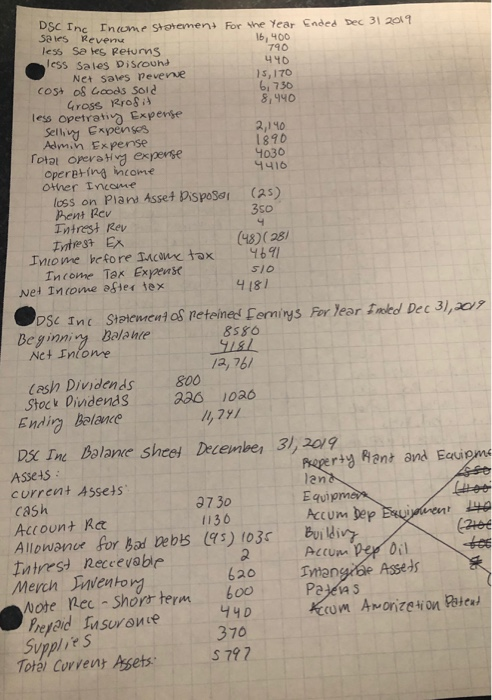 DSC Inc Income Statement For the Year Ended Dec 31 2019
Sales Revenu 16,400
less Sales Returns 790
less Sales Discount 440
Net Sales Revenue 15,170
Cost of Goods Sold 6,730
Gross Profit 8,440
less Opetrating Expense
Selling Expenses 2,140
Admin Expense 1890
Total operating expense 4030
Operating income 4410
Other Income
loss on Plant Asset Disposal (25)
Rent Rev 350
Intrest Rev 4
Intrest Ex (48) (281
Income before Income tax 4691
Income Tax Expense 510
Net Income after tax 4181
DSC Inc Statement of Reteined Eernings For Year Ended Dec 31, 2019
Beginning Balance 8580
Net Income 4181
12,761
Cash Dividends 800
Stock Dividends 220 1020
Ending Balance 11,741
DSC Inc Balance Sheet December 31, 2019
Assets:
Current Assets:
Cash 2730
Account Rec 1130
Allowance for Bad Debts (95) 1035
Intrest Reccevable 2
Merch Inventory 620
Note Rec - Short term 600
Prepaid Insurance 440
Supplies 370
Total Current Assets: 5797
Property Plant and Equipme
land
Equipmen
Accum Dep Equipment
Building (2100
Accum Dep Oil 600
Intangible Assets
Patens
Accum Amorization Patent